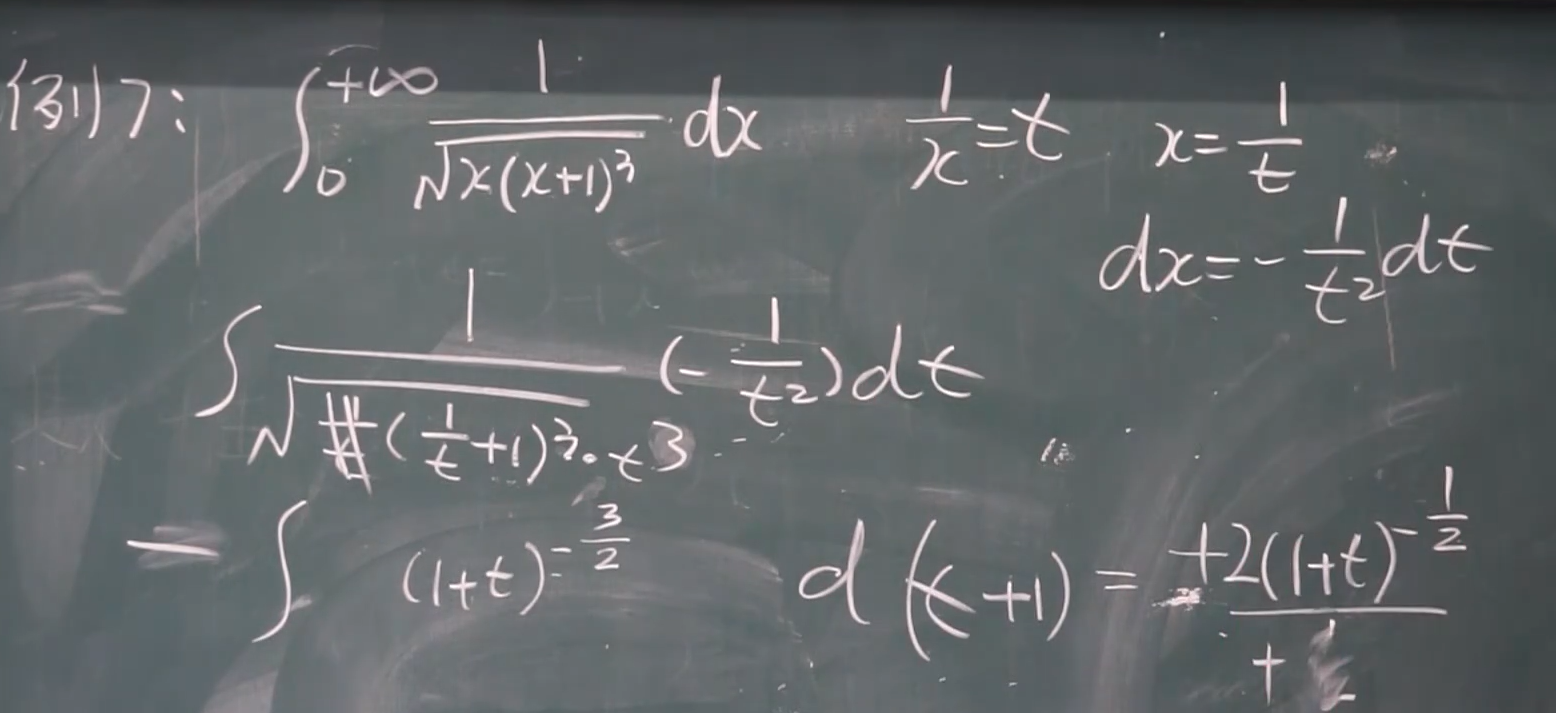 例7: ∫₀^{+∞} 1/√(x(x+1)³) dx 1/x = t x = 1/t
dx = - 1/t² dt
∫ 1/√((1/t+1)³·t³) (- 1/t²) dt
= ∫ (1+t)^{-3/2} d(t+1) = +2(1+t)^{-1/2}/+